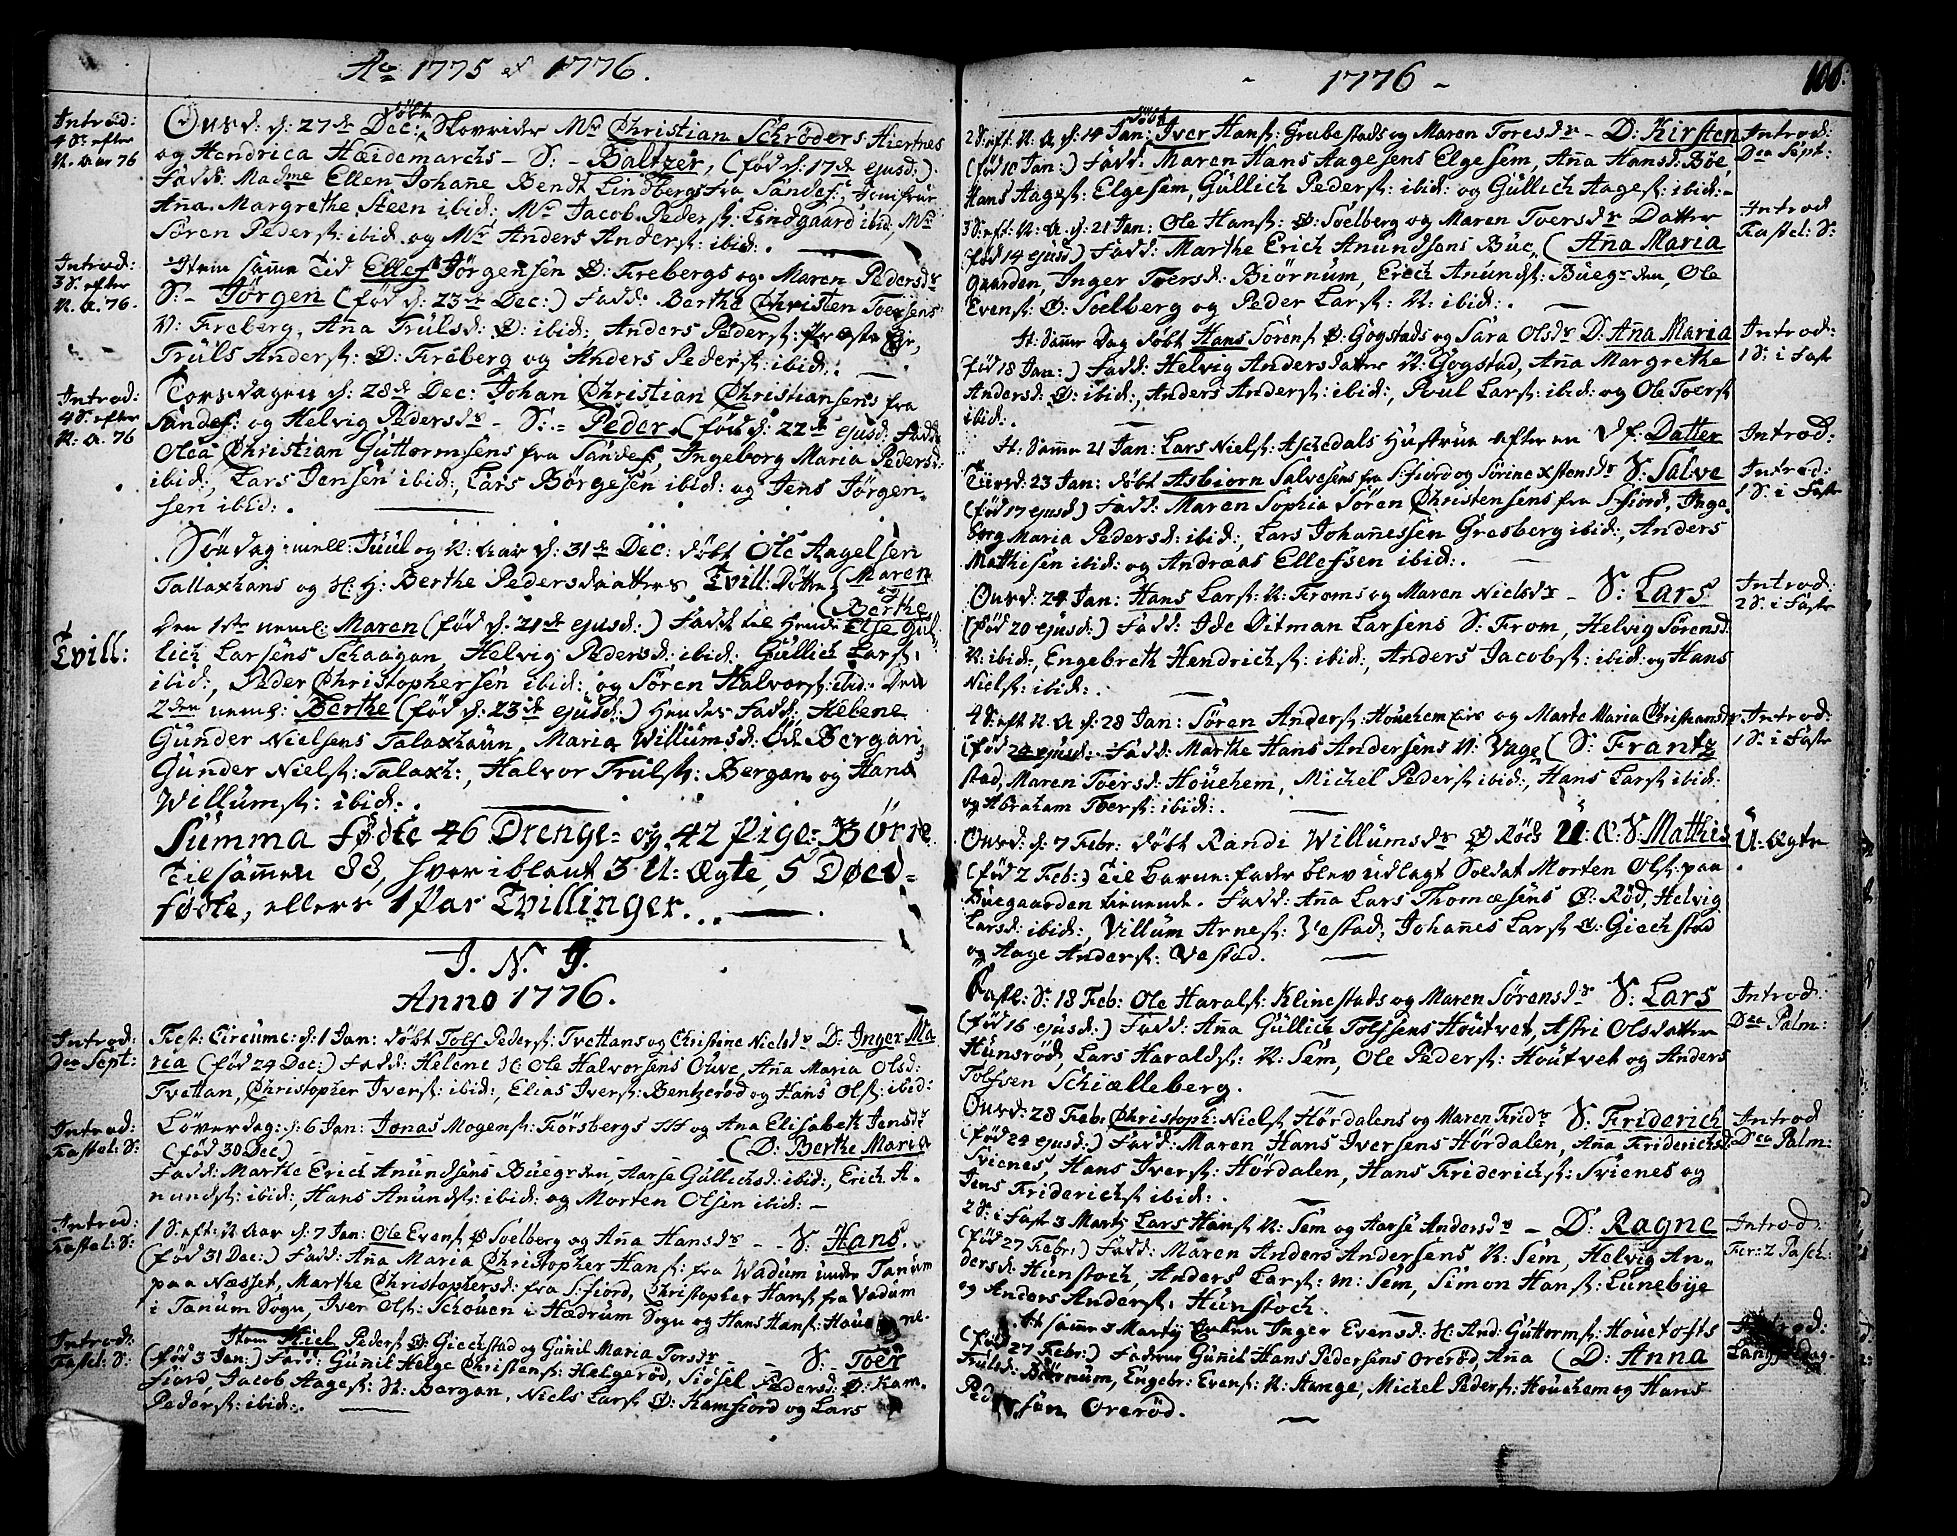 Ao 1775 et 1776.
Introd:
4 S: efter
N. aar 76
Onsd: d: 27de Dec: døbt Skovrider Mr Christian Schrøders Hiertnes
og Hendrica Heidemarchs - S: - Baltzer, (fød d: 17de ejusd:)
Fadd: Madme Ellen Johañe Bendt Lindbergs fra Sandef:, Jomfrue
Aña Margrethe Steen ibid:, Mr Jacob Peders: Lindgaard ibid:, Mr
Søren Peders: ibid: og Mr Anders Anders: ibid:.
Introd:
3 S: efter
N. a. 76.
Item samme Tid Ellef Jørgensen Ø: Frebergs og Maren Pedersdr
S: - Jørgen (fød d: 23de Dec:) Fadd: Berthe Christen Toersens
N: Freberg, Aña Trulsd: Ø: ibid:, Anders Peders:
Truls Anders: Ø: Freberg og Anders Peders: ibid:.
Introd:
4 S: efter
N. a. 76
Torsdagen d: 28de Dec: Johan Christian Christiansens fra
Sandef: og Helvig Pedersdr - S: - Peder (fød d: 22de ejusd: Fadd:
Olea Christian Guttormsens fra Sandef:, Ingeborg Maria Pedersd:
ibid:, Lars Jensen ibid:, Lars Børgesen ibid: og Jens Jørgen-
sen ibid:.
Søndag mell: Juul og N: aar d: 31de Dec: døbt Ole Aagesen
Tallaxhaus og H: H: Berthe Pedersdaatters Tvill: Døttre (Maren
og
(Berthe
Tvill:
Den 1ste neml: Maren (fød d: 21de ejusd:) Fadd: til hende Else Gul-
lich Larsens Schaagan, Helvig Pedersd: ibid: Gullich Lars:
ibid:, Peder Christophersen ibid: og Søren Halvors: ibid: Den
2den neml: Berthe (fød d: 23de ejusd:) Hendes Fadd: Helene
Gunder Nielsens Talaxhaun, Maria Willumsd: Øde Bergan,
Gunder Niels: Talaxh:, Halvor Truls: Bergan og Hans
Willums: ibid:.
Summa fødte 46 Drenge- og 42 Pige-Børn
Tilsammen 88, hvoriblant 3 U: Ægte, 5 Død-
fødte, ellers 1 Par Tvillinger.
J. N. J.
Anno 1776.
Introd:
Dca Sept:
Fest: Circumc: d: 1 Jan: døbt Tolf Peders: Tvettans og Christine Nielsdr D: Inger Ma
ria (fød 24 Dec:) Fadd: Helene H: Ole Halvorsens Ouve, Aña Maria Olsd:
Tvettan, Christopher Ivers: ibid:, Elias Ivers: Bentzerød og Hans Ols: ibid:
Introd:
Fastel: S:
Løverdag: d: 6 Jan: Jonas Mogens: Forsbergs og Ana Elisabeth Jensdr
(fød 30 Dec)
(D: Berthe Maria
Fadd: Marthe Erich Anundsens Buegrden, Aarse Gullichsd: ibid:, Erich A-
nunds: ibid:, Hans Anunds: ibid: og Morten Olsen ibid: -
Introd:
Fastel: S:
1 S: eft: N: Aar d: 7 Jan: Ole Evens: Ø Soelberg og Aña Hansdr - - S: Hans.
(fød 31 Dec:) Fadd: Aña Maria Christopher Hans: fra Wadum under Tanum
paa Næsset, Marthe Christophersd: fra S:fiord, Christopher Hans: fra Vadum
i Tanum Sogn, Iver Ols: Schouen i Hedrum Sogn og Hans Hans: Haugene.
Introd:
Fastel: S:
Item Kiel Peders: Ø: Giechstad og Gunil Maria Torsdr - - S: - Toer
(fød 3 Jan:) Fadd: Gunil Helge Christens: Helgerød, Sidsel Pedersd: Ø: Kam-
fiord, Jacob Aages: N: Bergan, Niels Lars: Ø: Kamfiord og Lars
Peders: ibid:.
- 1776 -
106:
2 S: eft: N: A d: 14 Jan: døbt Iver Hans: Grubestads og Maren Toresdr - D: Kirsten
(fød 10 Jan:) Fadd: Maren Hans Aagesens Elgesem, Aña Hansd: Bøe,
Hans Aages: Elgesem, Gullich Peders: ibid: og Gullich Aages: ibid: -
Introd:
Dca Sept:
3 S: eft: N: A. d: 21 Jan: Ole Hans: Ø: Soelberg og Maren Toersdr Datter
(fød 14 ejusd) Fadd: Marthe Erich Anundsens Bue- (Aña Maria
gaarden, Inger Toersd: Biørnum, Erich Anunds: Buegrden, Ole
Evens: Ø: Soelberg og Peder Lars: N: ibid:.
Introd
Fastel: S:
It: Samme Dag døbt Hans Sørens: Ø: Gogstads og Sara Olsdr D: Aña Maria
(fød 18 Jan:) Fadd: Helvig Andersdatter N: Gogstad, Aña Margrethe
Andersd: Ø: ibid:, Anders Anders: ibid:, Poul Lars: ibid: og Ole Toers:
ibid:.
Introd:
1 S: i Faste
It: Samme 21 Jan: Lars Niels: Aschedals Hustrue efter en Df. Datter
Introd:
Tiirsd: 23 Jan: døbt Asbiorn Salvesens fra S:fiord og Sørine Xstensdr S: Salve
(fød 17 ejusd) Fadd: Maren Sophia Søren Christensens fra S:fiord, Inge-
borg Maria Pedersd: ibid:, Lars Johañessen Gresberg ibid:, Anders
Mathisen ibid: og Andreas Ellefsen ibid:.
Introd:
1 S: i Faste
Onsd: 24 Jan: Hans Lars: N: Froms og Maren Nielsdr - S: Lars
(fød 20 ejusd:) Fadd: Ide Ditman Larsens S: From, Helvig Sørensd:
N: ibid:, Engebreth Hendrichs: ibid:, Anders Jacobs: ibid: og Hans
Niels: ibid:.
Introd:
2 S: i Faste
4 S: eft N: A d: 28 Jan: Søren Anders: Houehem Eie og Marte Maria Christiansdr
(fød 24 ejusd: Fadd: Marthe Hans Andersens N: Vage- (S: Frantz
stad, Maren Toersd: Houehem, Michel Peders: ibid:, Hans Lars: ibid:
og Abraham Toers: ibid:.
Introd:
1 S: i Faste
Onsd: d: 7 Febr: døbt Randi Willumsdr Ø Røds U: Æ: S: Mathis
(fød 2 Feb:) Til Barne-fader blev udlagt Soldat Morten Ols: paa
Buegaarden tienende. Fadd: Aña Lars Thomesens Ø: Rød, Helvig
Larsd: ibid:, Villum Arnes: Vestad, Johañes Lars: Ø: Giechstad
og Aage Anders: Vestad.
U: Ægte
Fastl: S: 18 Feb: Ole Harals: Klinestads og Maren Sørensdr S: Lars
(fød 16 ejusd:) Fadd: Aña Gullich Tolfsens Houtvet, Astri Olsdatter
Hunsrød, Lars Haralds: N: Sem, Ole Peders: Houtvet og Anders
Tolfsen Schielleberg.
Introd:
Dca Palm:
Onsd: 28 Feb: Christoph: Niels: Hørdalens og Maren Fridr S: Friderich
(fød 24 ejusd:) Fadd: Maren Hans Iversens Hørdalen, Aña Friderichsd:
Svienes, Hans Ivers: Hørdalen, Hans Friderichs: Svienes og
Jens Friderichs: ibid:.
Introd
Dca Palm:
2 S: i Fast 3 Marty Lars Hans: N: Sem og Aarse Andersdr - D: Ragne
(fød 27 Febr:) Fadd: Maren Anders Andersens N: Sem, Helvig An-
dersd: Hunstoch, Anders Lars: M: Sem, Simon Hans: Lunebye
og Anders Anders: Hunstoch.
Introd:
Fer: 2 Pasch:
It samme 3 Martij Enken Inger Evensd: H: And: Guttorms: Houetofts
(fød 27 Febr:) Faddere Gunil Hans Pedersens Orerød, Aña (D: Anna
Trulsd: Biørnum, Engebr: Evens: N: Hange, Michel Peders: Houehem og Hans
Pedersen Orerød.
Introd: